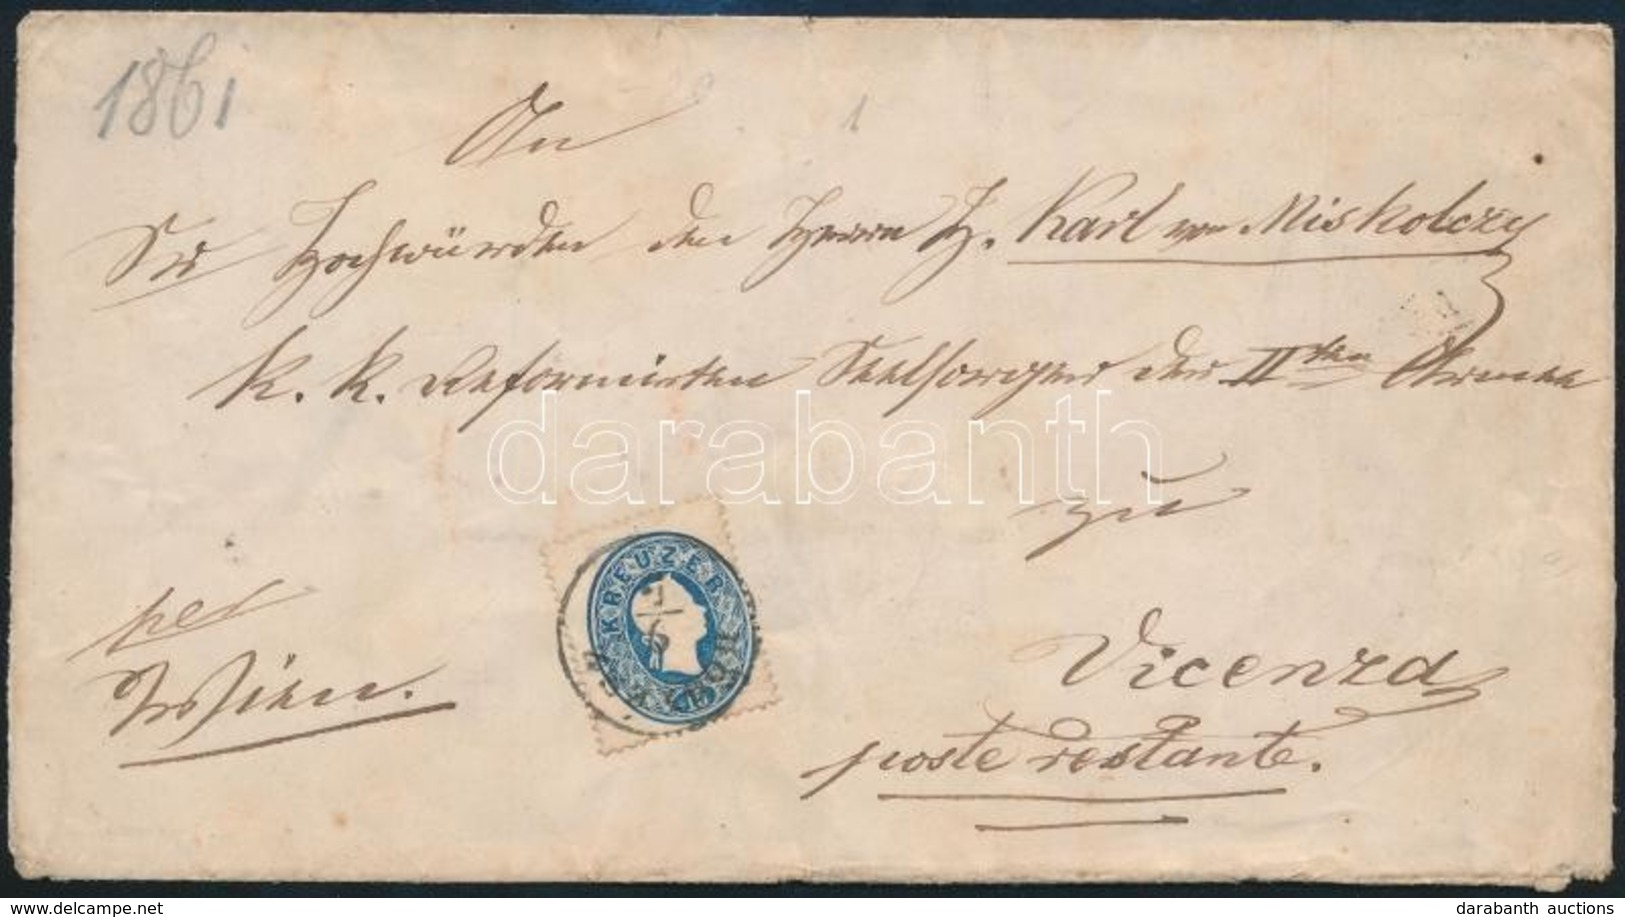 1861
An
Sr Hochwürden den Herrn H. Karl von Miskolczy
K. K. Reformirten Seelsorger der IIten Armee
zu
Vicenza
poste restante.
per
Wien.
KREUZER
15
darabanth
delcampe.net
darabanth auctions